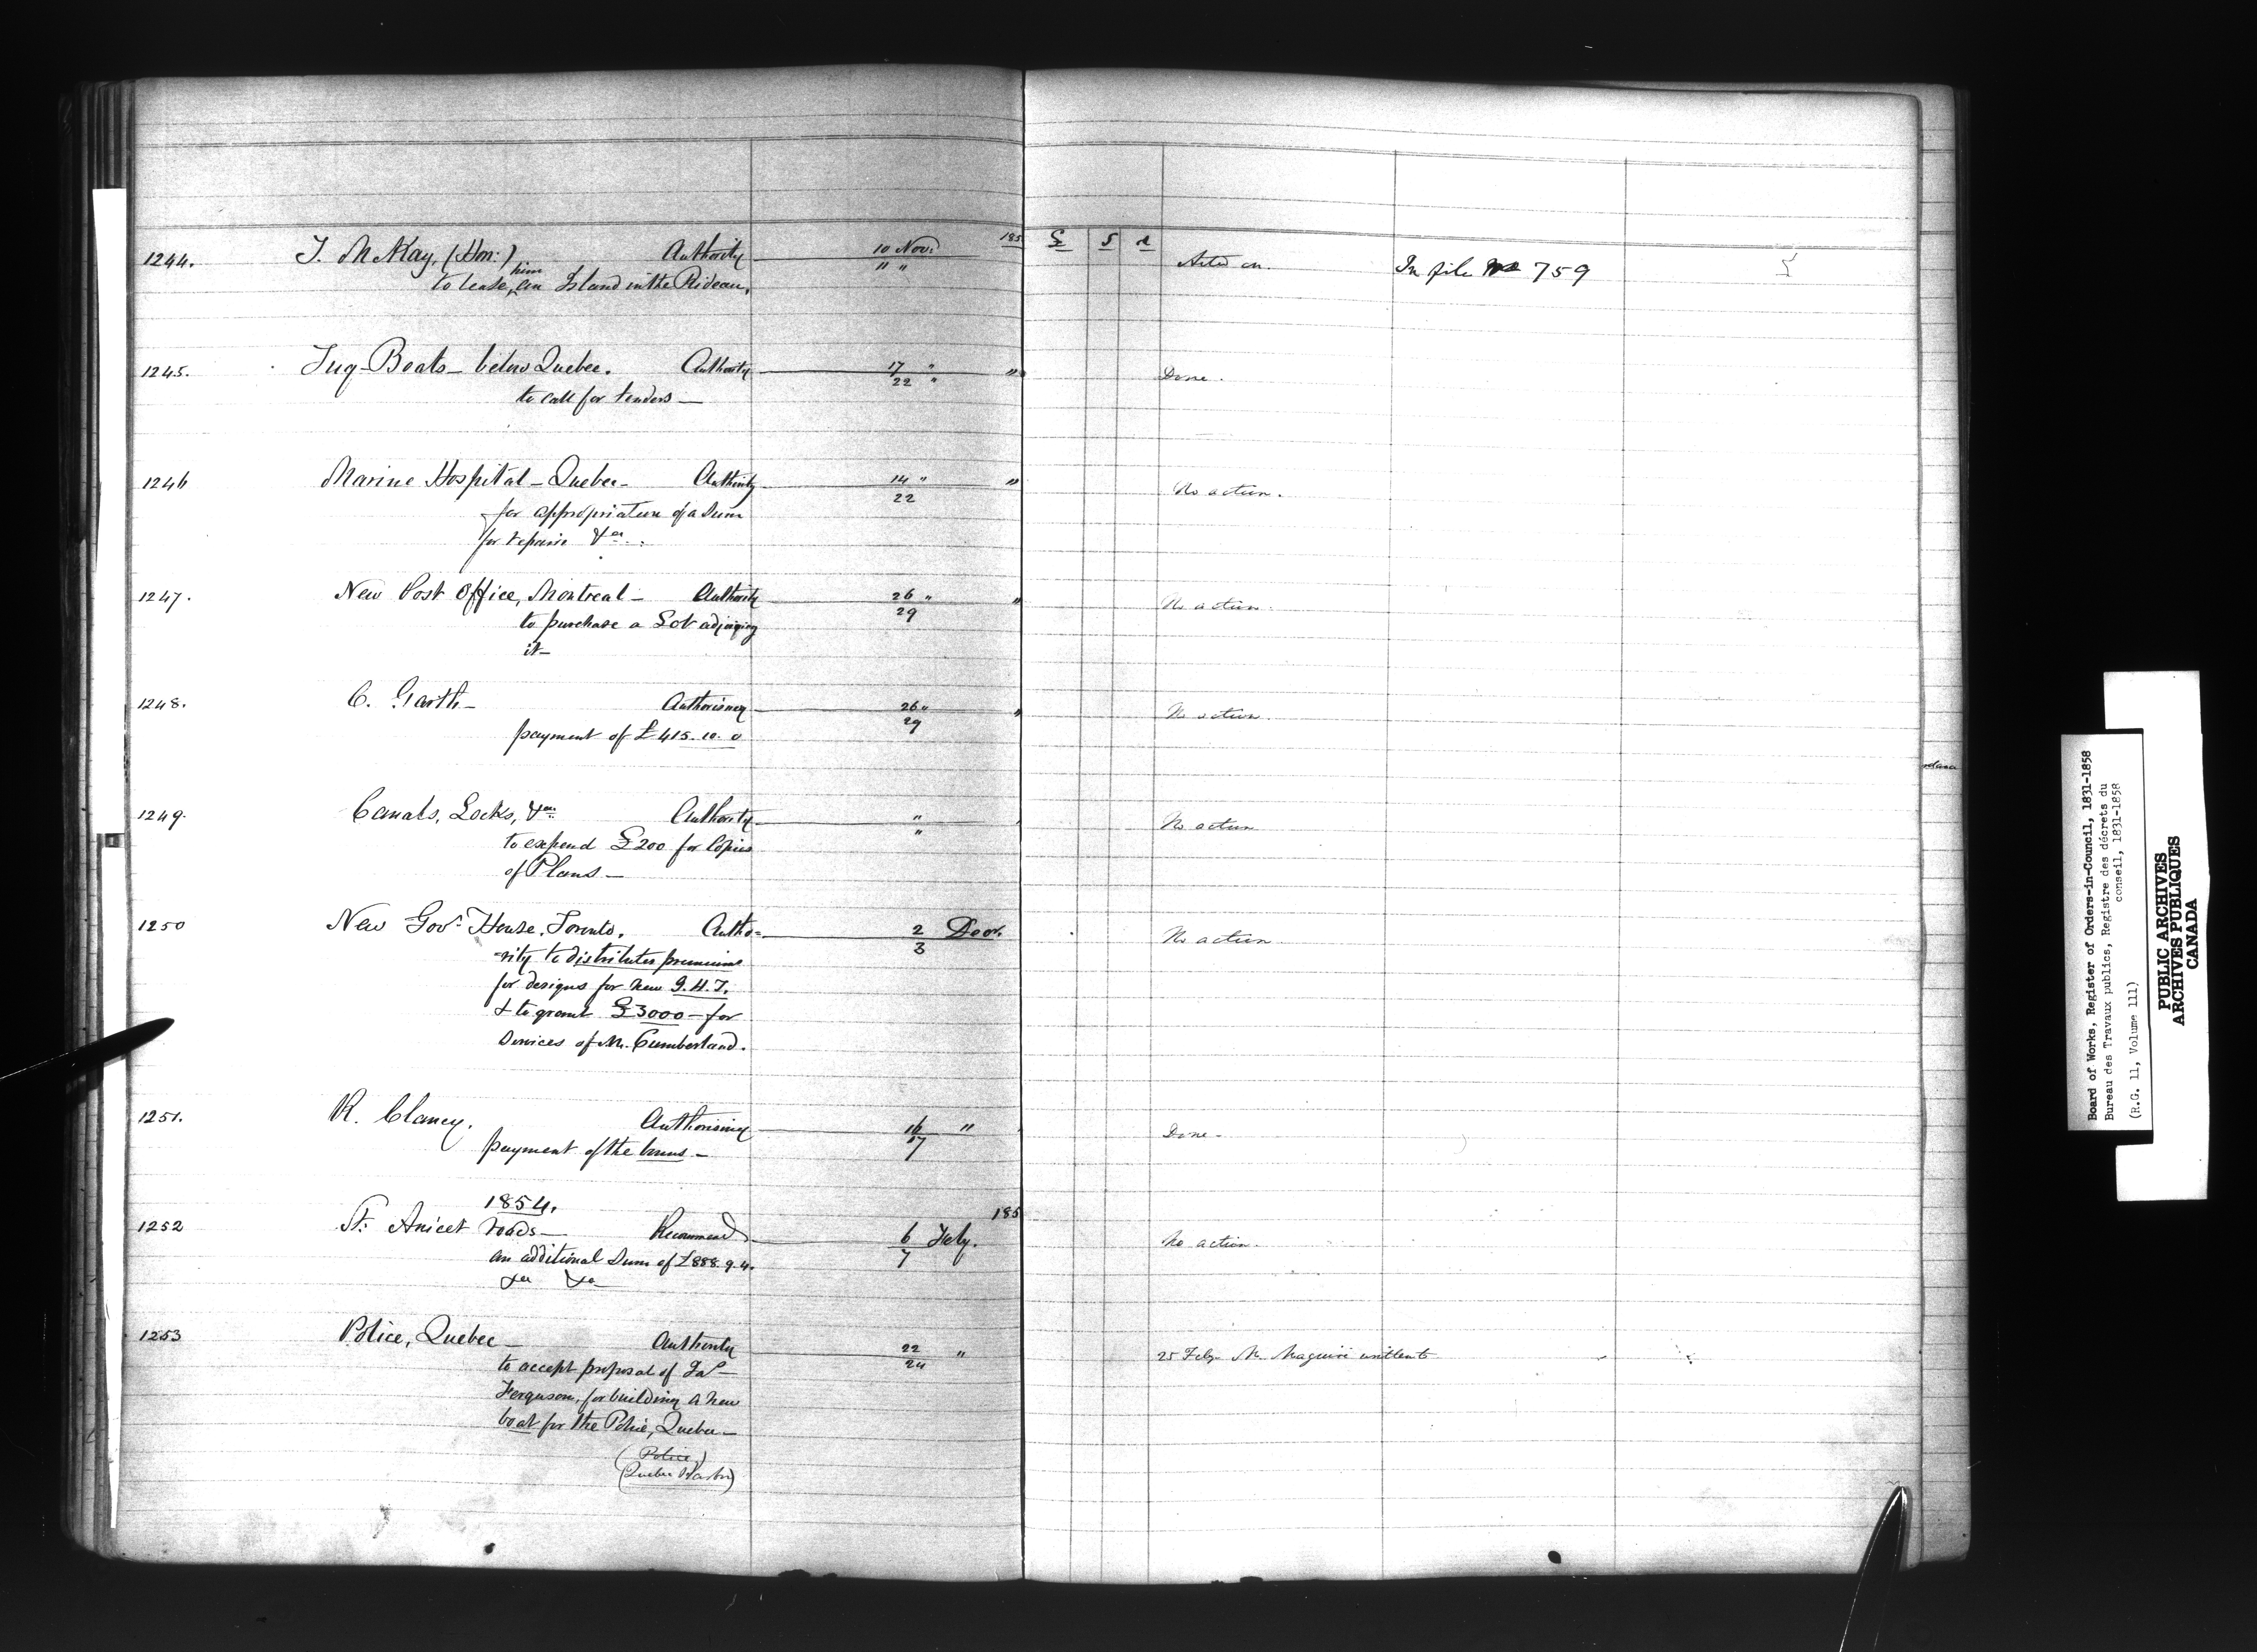 185 £ S d
1244. T. McKay, (Hon:) Authority 10 Nov: Acted on. In file No 759
to lease him an Island in the Rideau. " "
1245. Tug-Boats - below Quebec. Authority 17 " " Done.
to call for tenders - 22 "
1246 Marine Hospital - Quebec - Authority 14 " " No action.
for appropriation of a Sum 22
for repairs &ca.
1247. New Post Office, Montreal - Authority 26 " " No action.
to purchase a Lot adjoining 29
it -
1248. C. Garth - Authorising 26 " " No action.
payment of £415.10.0 29
1249. Canals, Locks, &ca. Authority " No action
to expend £200 for Copies "
of Plans -
1250 New Govt. House, Toronto. Autho= 2 Decr. No action
=rity to distribute premiums 3
for designs for new G.H.T.
& to grant £3000 - for
Services of Mr. Cumberland.
1251. R. Clancy. Authorising 16 " Done -
payment of the 17
1854. 185
1252 St. Anicet roads - Recommend 6 Feby. No action.
an additional Sum of £888.9.4. 7
&ca &ca
1253 Police, Quebec - Authority 22 " 25 Feby. Mr. Maguire written to
to accept proposal of Jas 24
Ferguson, for building a new
boat for the Police, Quebec -
(Police,)
(Quebec Harbor)
Board of Works, Register of Orders-in-Council, 1831-1858
Bureau des Travaux publics, Registre des décrets du
conseil, 1831-1858
(R.G. 11, Volume 111)
PUBLIC ARCHIVES
ARCHIVES PUBLIQUES
CANADA